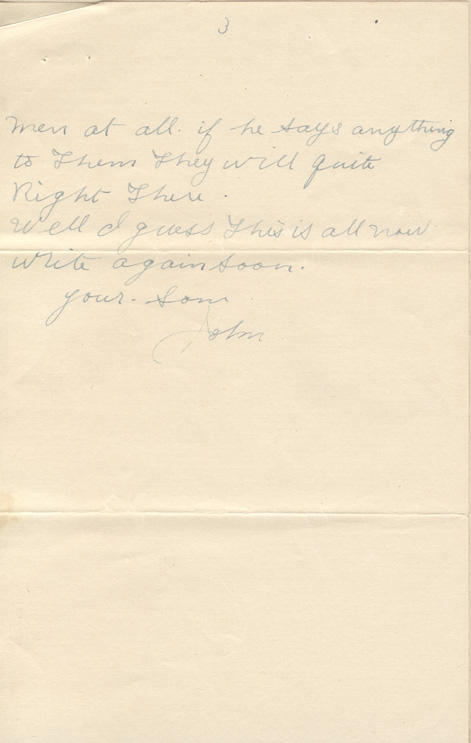 3
men at all. if he says anything
to Them They will quite
Right There.
Well I guess This is all now
write again soon.
your. Son
John